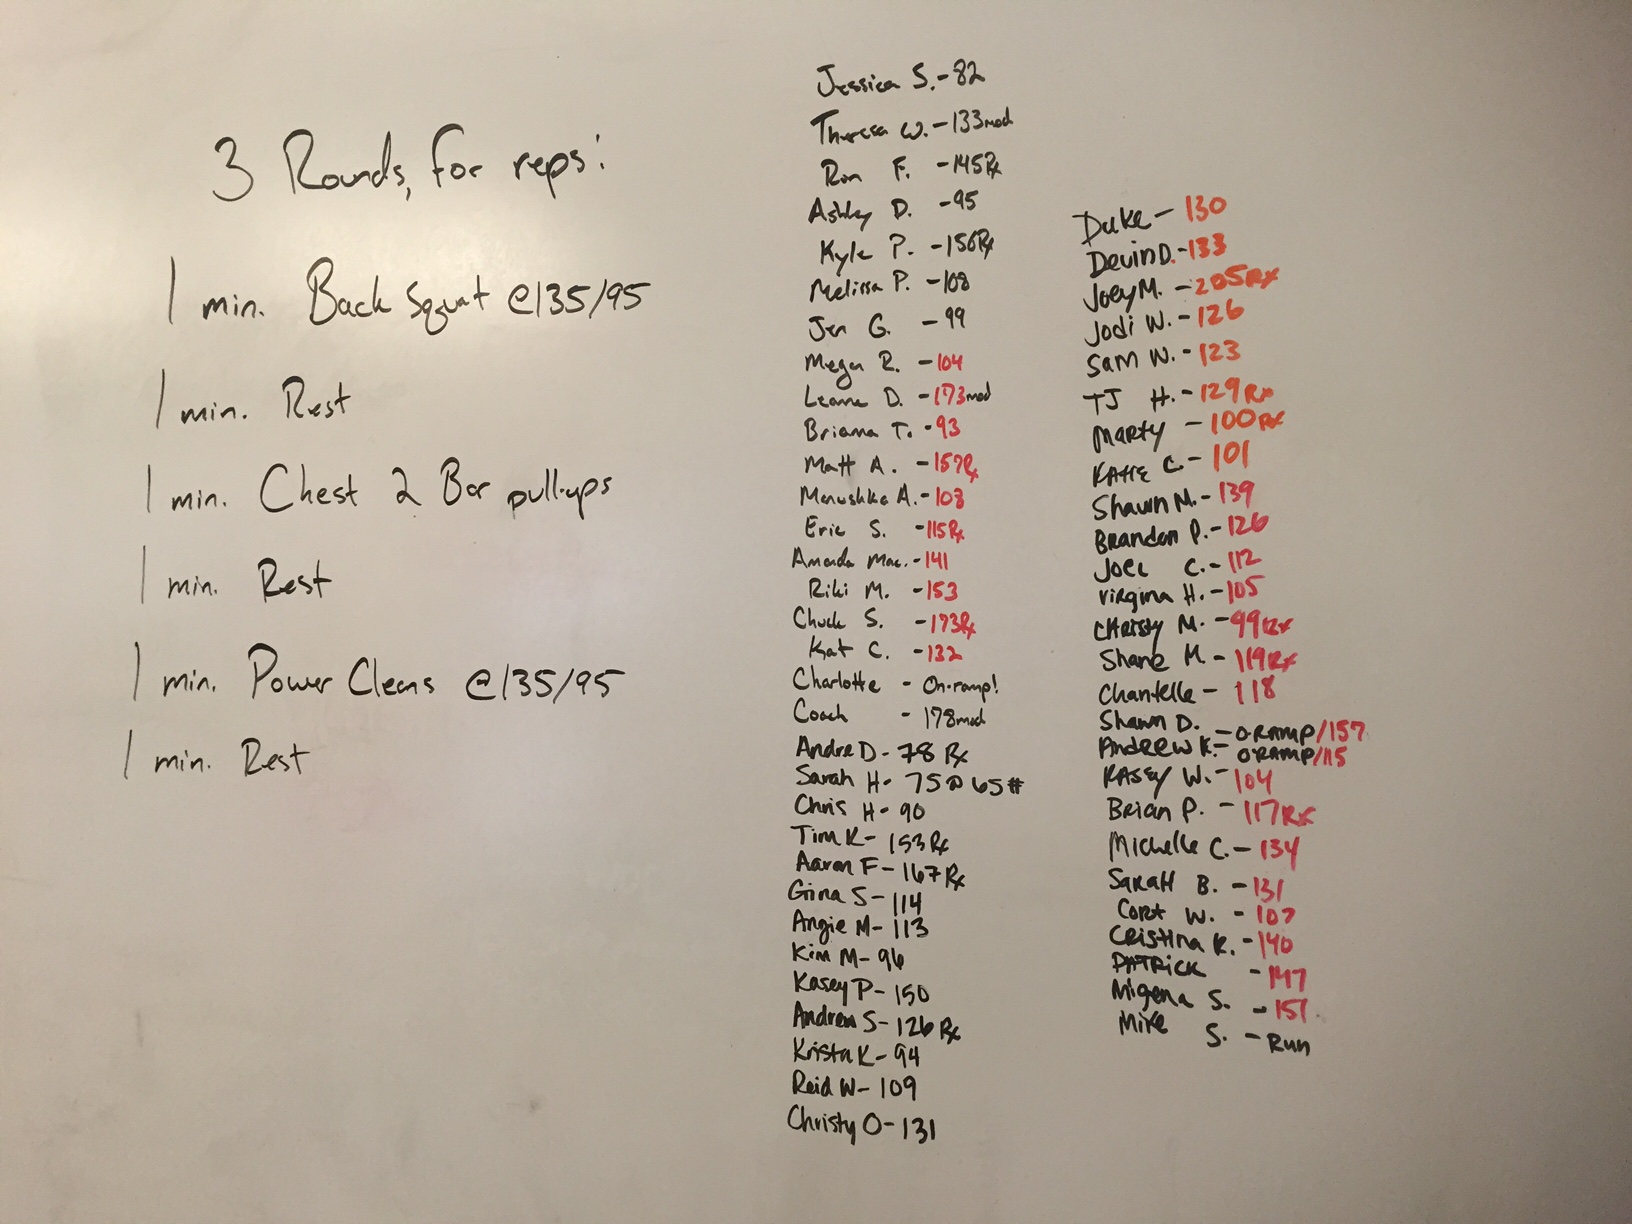 3 Rounds, for reps:
1 min. Back Squat @135/95
1 min. Rest
1 min. Chest 2 Bar pull-ups
1 min. Rest
1 min. Power Cleans @135/95
1 min. Rest
Jessica S. - 82
Theresa W. - 133 mod
Ron F. - 145 Rx
Ashley D. - 95
Kyle P. - 156 Rx
Melissa P. - 108
Jen G. - 99
Megan R. - 104
Leanne D. - 173 mod
Briana T. - 93
Matt A. - 157 Rx
Manushka A. - 103
Eric S. - 115 Rx
Amanda Mac. - 141
Riki M. - 153
Chuck S. - 173 Rx
Kat C. - 132
Charlotte - On-ramp!
Coach - 178 mod
Andre D - 78 Rx
Sarah H - 75 @ 65#
Chris H - 90
Tim K - 153 Rx
Aaron F - 167 Rx
Gina S - 114
Angie M - 113
Kim M - 96
Kasey P - 150
Andrew S - 126 Rx
Krista K - 94
Reid W - 109
Christy O - 131
Duke - 130
Devin D. - 133
Joey M. - 205 Rx
Jodi W. - 126
Sam W. - 123
TJ H. - 129 Rx
Marty - 100 Rx
Katie C. - 101
Shawn M. - 139
Brandon P. - 126
Joel C. - 112
Virgina H. - 105
Christy M. - 99 Rx
Shane M. - 119 Rx
Chantelle - 118
Shawn D. - O-RAMP/157
Andrew K. - O-RAMP/115
Kasey W. - 104
Brian P. - 117 Rx
Michelle C. - 134
Sarah B. - 131
Cort W. - 107
Cristina K. - 140
Patrick - 147
Migena S. - 151
Mike S. - Run